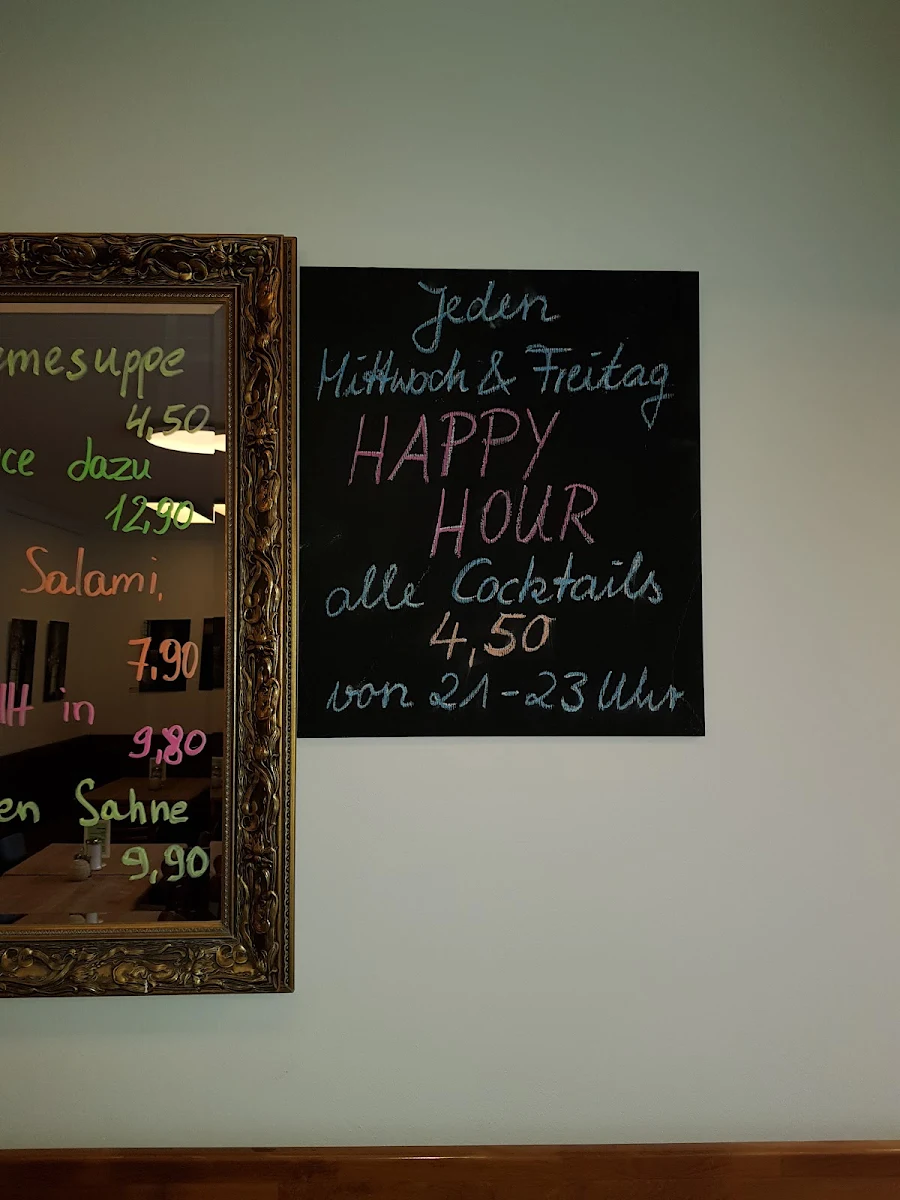 4,50
dazu
12,90
Salami,
7,90
in
9,80
Sahne
9,90
Jeden
Mittwoch & Freitag
HAPPY
HOUR
alle Cocktails
4,50
von 21-23 Uhr